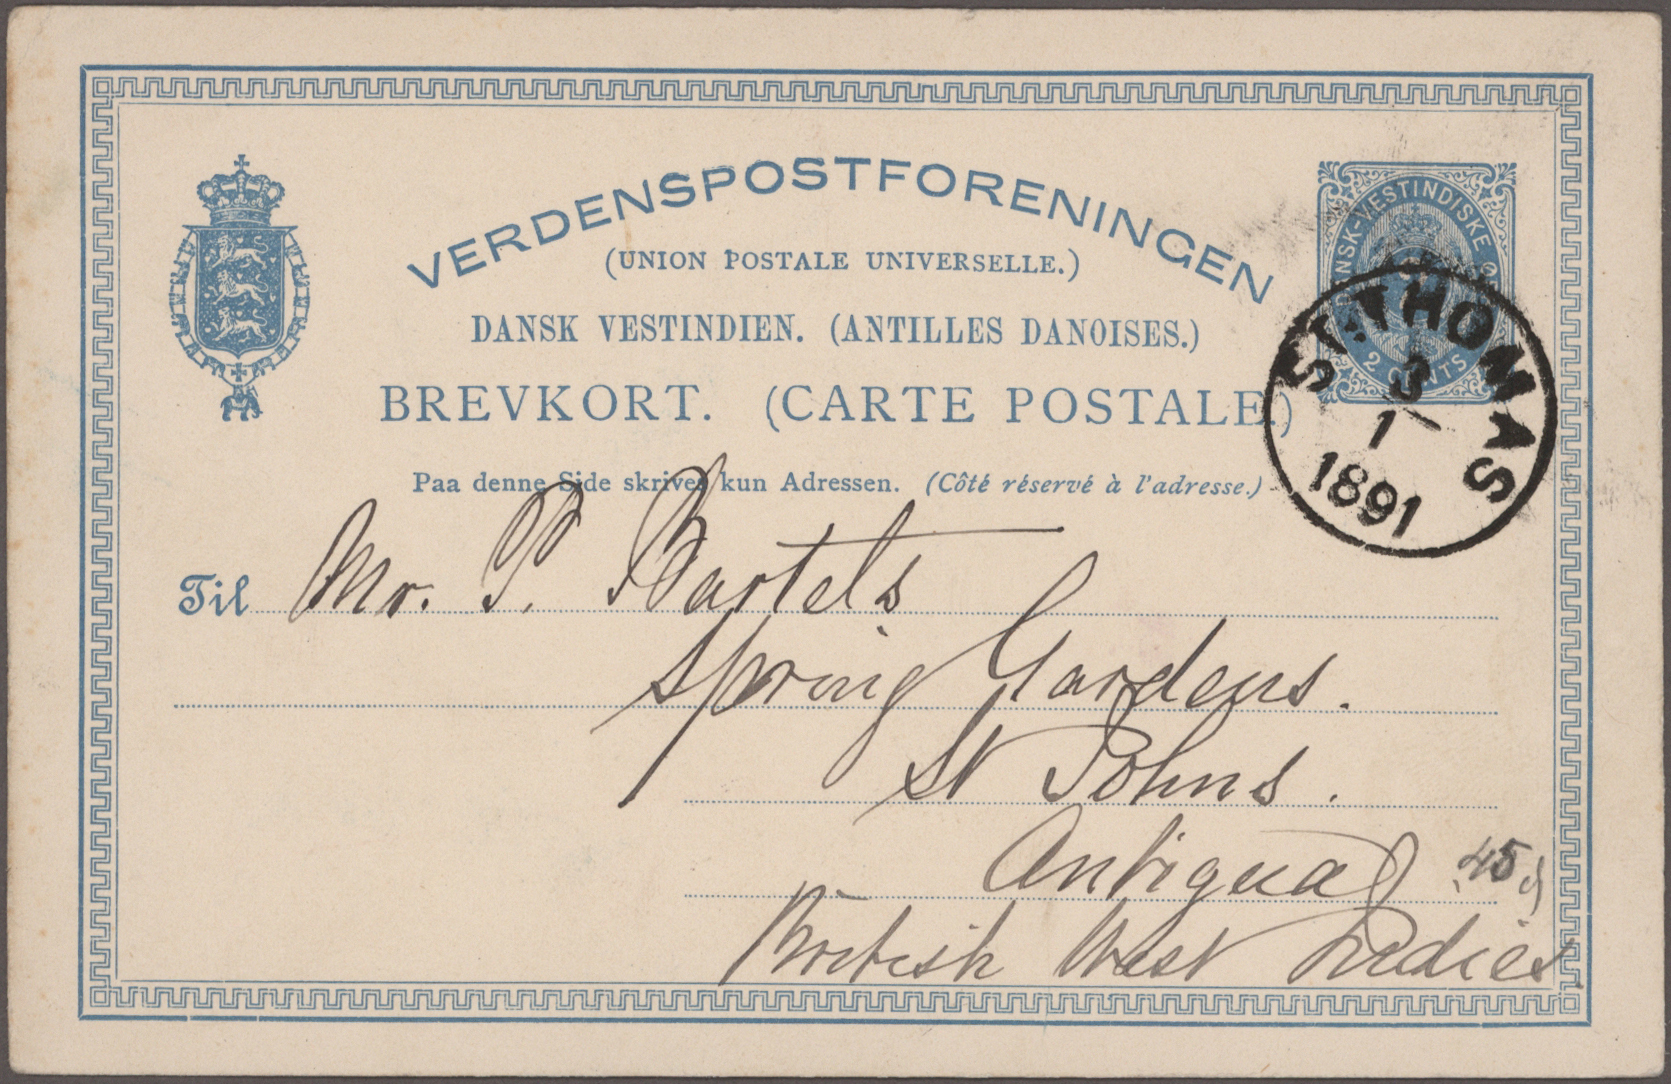 VERDENSPOSTFORENINGEN
(UNION POSTALE UNIVERSELLE.)
DANSK VESTINDIEN. (ANTILLES DANOISES.)
BREVKORT. (CARTE POSTALE.)
Paa denne Side skrives kun Adressen. (Côté réservé à l'adresse.)
DANSK-VESTINDISKE
2 CENTS
ST. THOMAS
3
1
1891
Til Mr. P. Bartels
Spring Gardens.
St Johns.
Antigua
British West Indies